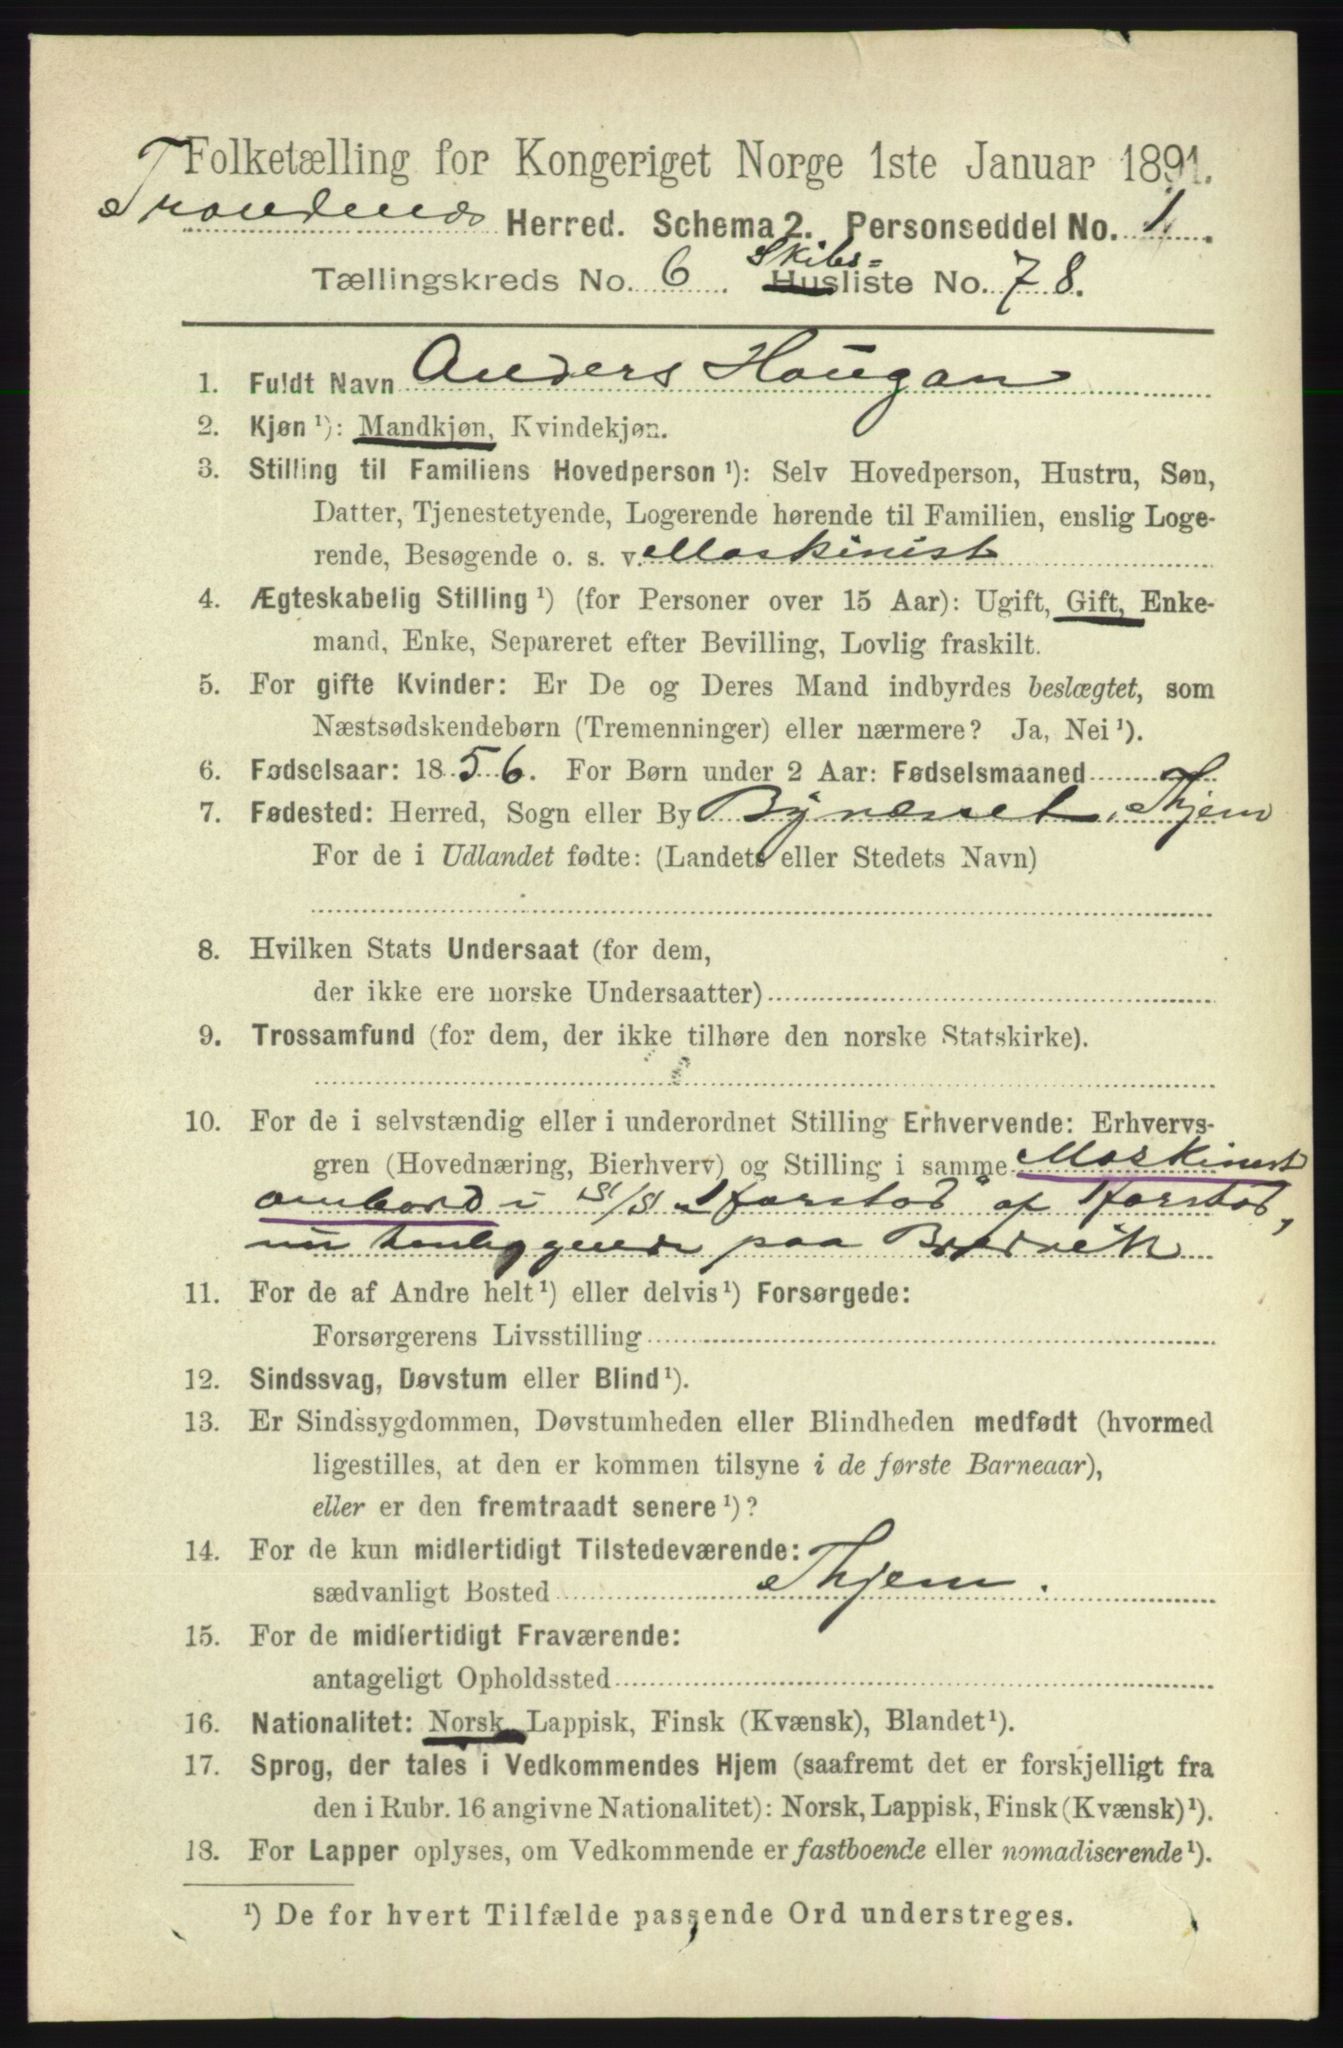 Folketælling for Kongeriget Norge 1ste Januar 1891.
Trondenes Herred. Schema 2. Personseddel No. 1.
Skibs=
Tællingskreds No. 6. Husliste No. 78.
1. Fuldt Navn Anders Hougan
2. Kjøn ¹): Mandkjøn, Kvindekjøn.
3. Stilling til Familiens Hovedperson ¹): Selv Hovedperson, Hustru, Søn,
Datter, Tjenestetyende, Logerende hørende til Familien, enslig Loge-
rende, Besøgende o. s. v. Maskinist
4. Ægteskabelig Stilling ¹) (for Personer over 15 Aar): Ugift, Gift, Enke-
mand, Enke, Separeret efter Bevilling, Lovlig fraskilt.
5. For gifte Kvinder: Er De og Deres Mand indbyrdes beslægtet, som
Næstsødskendebørn (Tremenninger) eller nærmere? Ja, Nei ¹).
6. Fødselsaar: 1856. For Børn under 2 Aar: Fødselsmaaned
7. Fødested: Herred, Sogn eller By Bynesset, Thjem
For de i Udlandet fødte: (Landets eller Stedets Navn)
8. Hvilken Stats Undersaat (for dem,
der ikke ere norske Undersaatter)
9. Trossamfund (for dem, der ikke tilhøre den norske Statskirke).
10. For de i selvstændig eller i underordnet Stilling Erhvervende: Erhvervs-
gren (Hovednæring, Bierhverv) og Stilling i samme Maskinist
ombord i S/S "Harstad" af Harstad,
nu henliggende paa Bredvik
11. For de af Andre helt ¹) eller delvis ¹) Forsørgede:
Forsørgerens Livsstilling
12. Sindssvag, Døvstum eller Blind ¹).
13. Er Sindssygdommen, Døvstumheden eller Blindheden medfødt (hvormed
ligestilles, at den er kommen tilsyne i de første Barneaar),
eller er den fremtraadt senere ¹)?
14. For de kun midlertidigt Tilstedeværende:
sædvanligt Bosted Thjem.
15. For de midlertidigt Fraværende:
antageligt Opholdssted
16. Nationalitet: Norsk, Lappisk, Finsk (Kvænsk), Blandet ¹).
17. Sprog, der tales i Vedkommendes Hjem (saafremt det er forskjelligt fra
den i Rubr. 16 angivne Nationalitet): Norsk, Lappisk, Finsk (Kvænsk) ¹).
18. For Lapper oplyses, om Vedkommende er fastboende eller nomadiserende ¹).
¹) De for hvert Tilfælde passende Ord understreges.